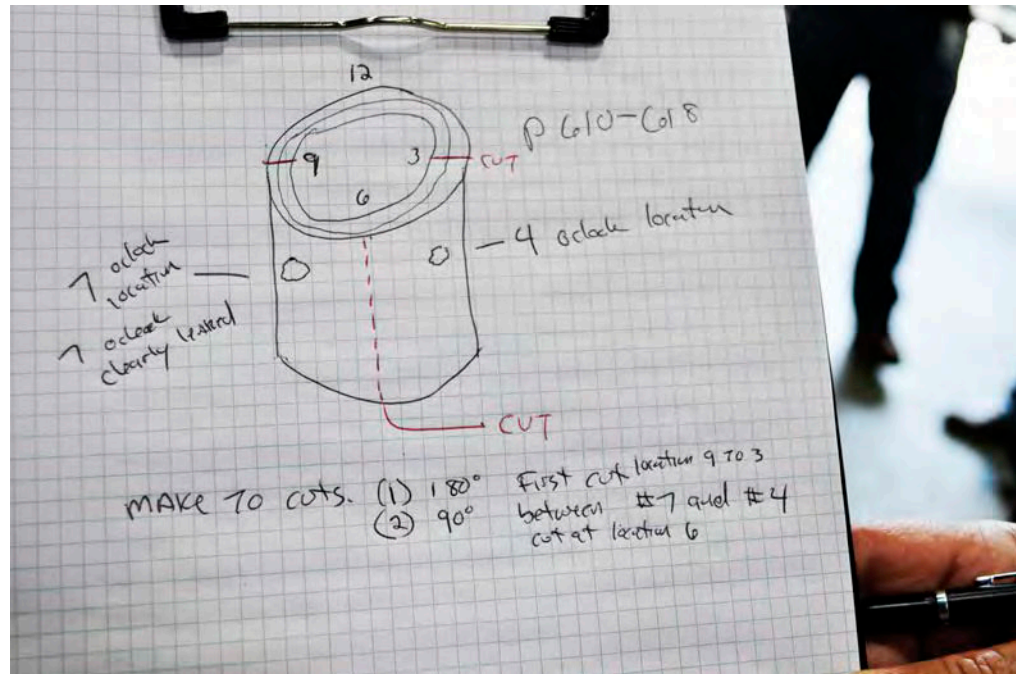 12
P 610-618
9
3
CUT
6
4 oclock location
7 oclock
location
7 oclock
clearly
CUT
MAKE TO CUTS. (1) 180° First cut location 9 TO 3
(2) 90° between #7 and #4
cut at location 6